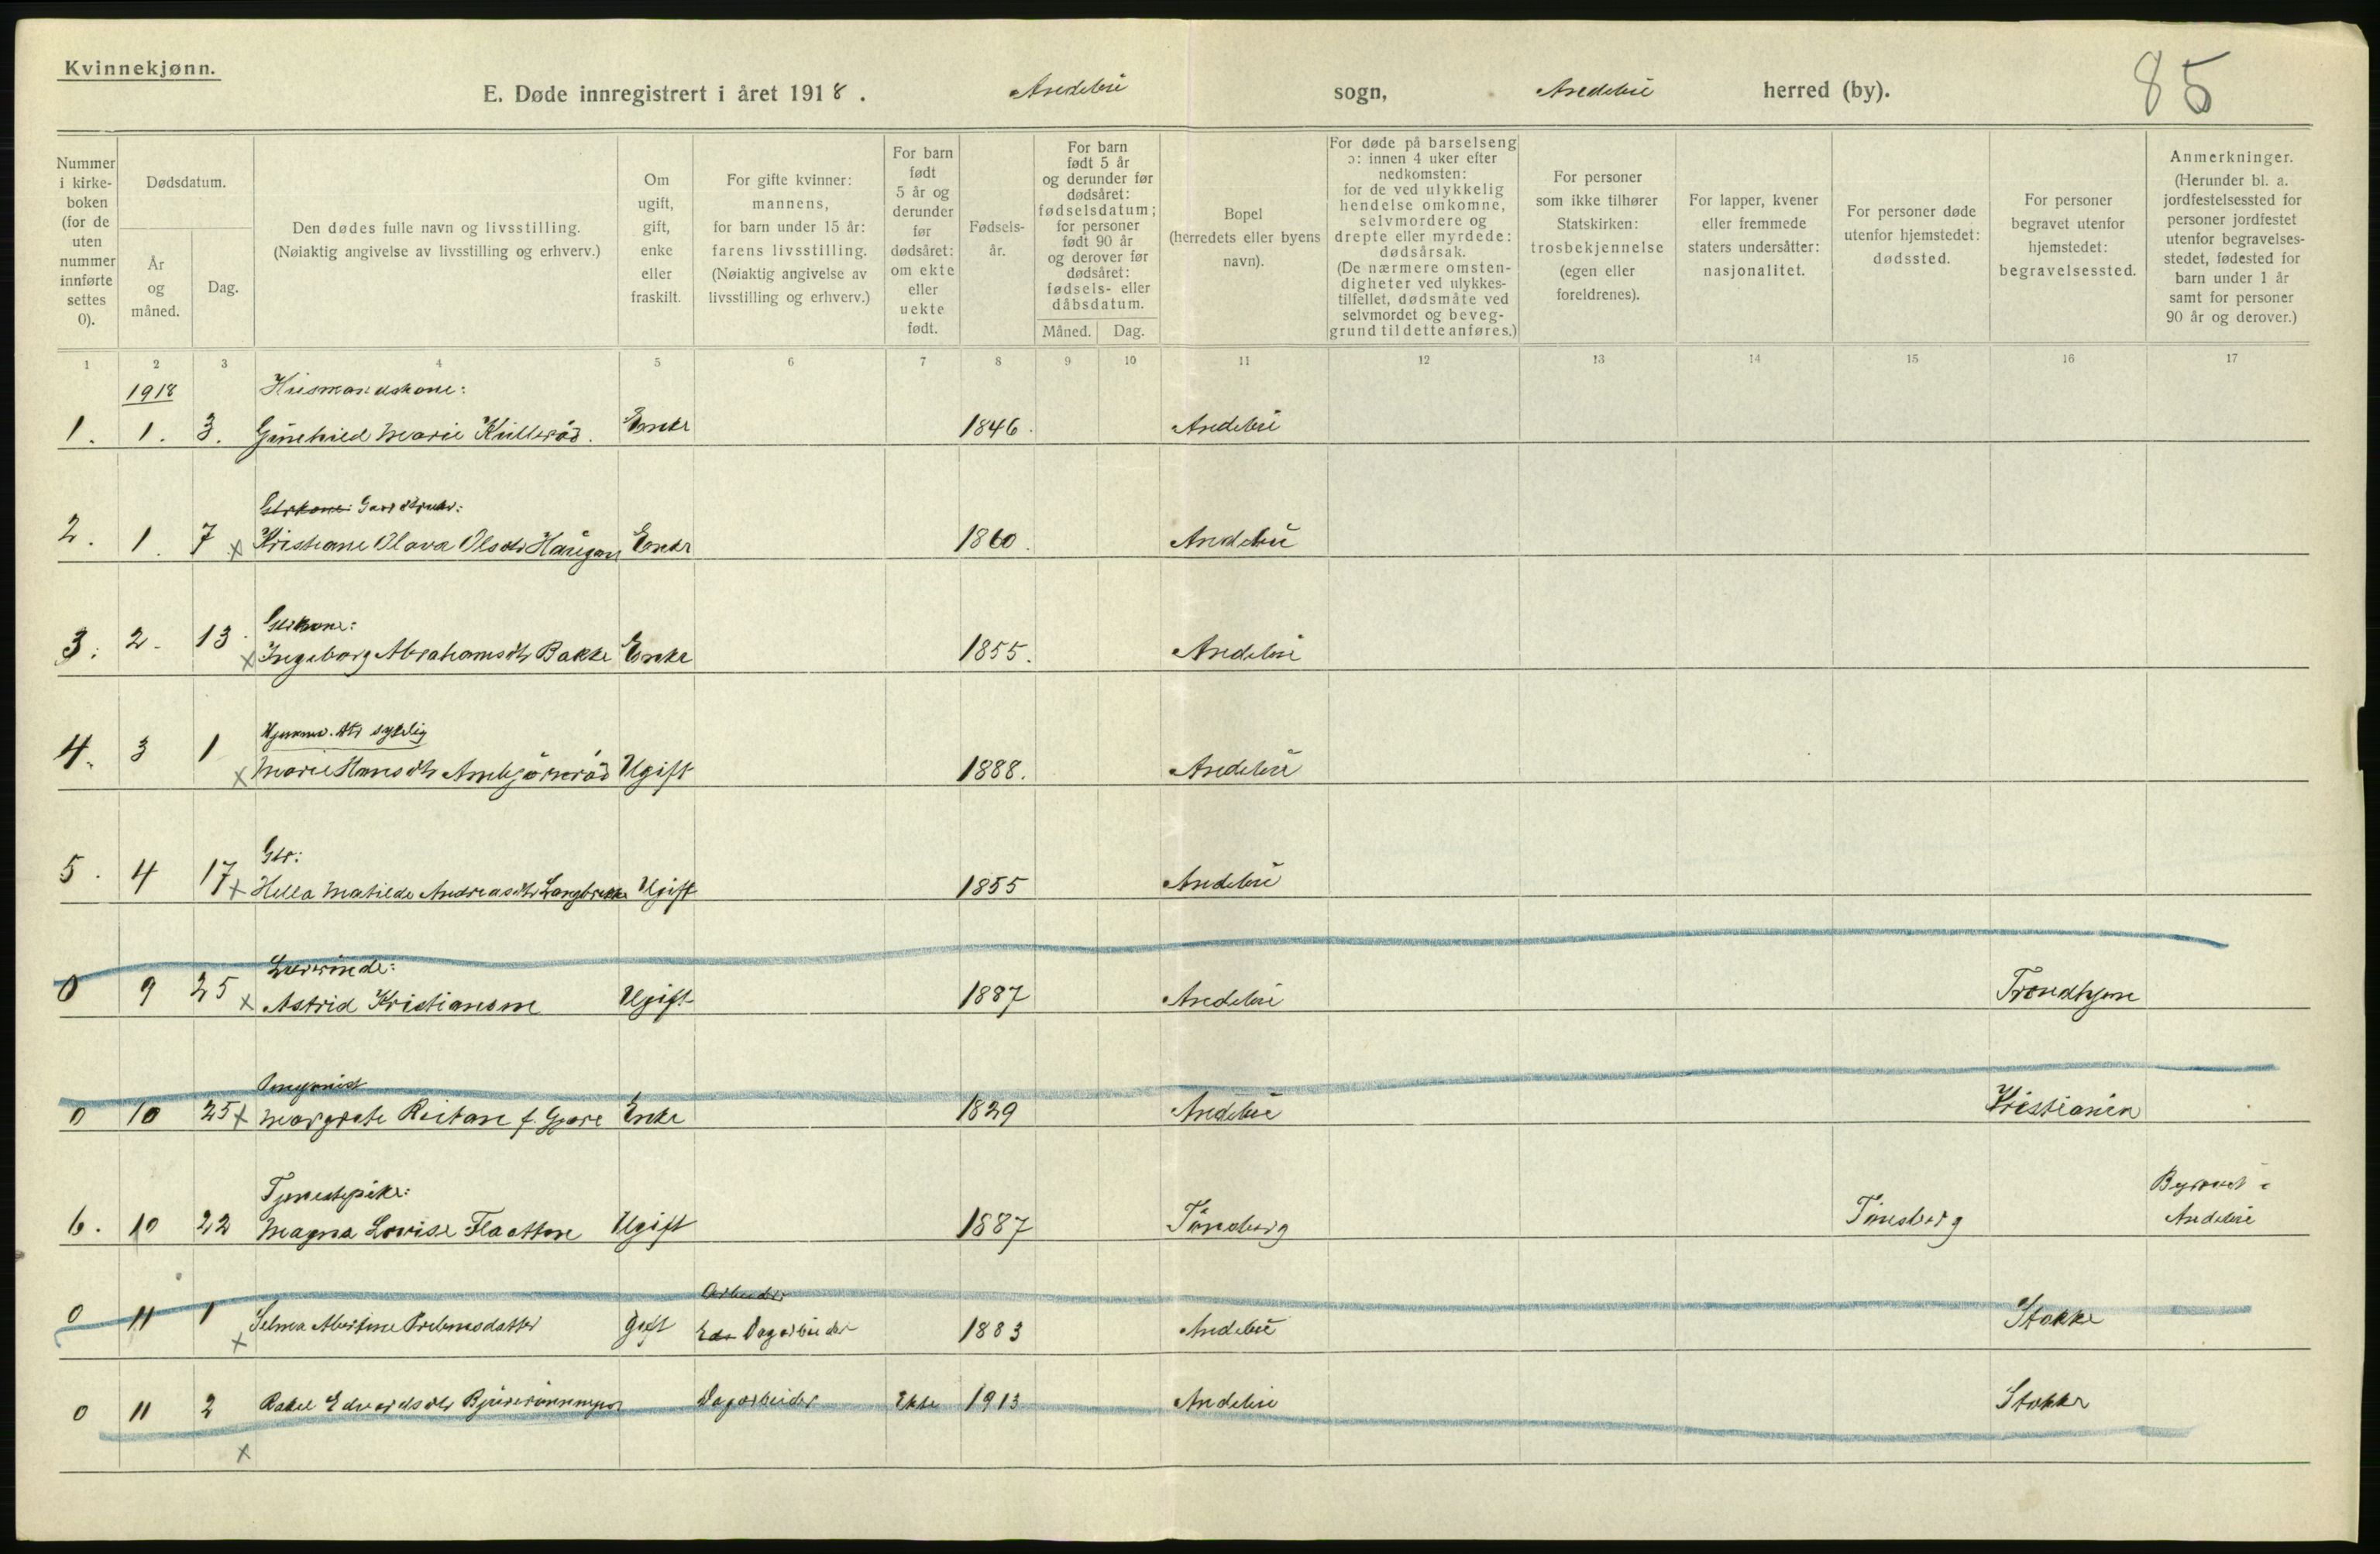 Kvinnekjønn.
E. Døde innregistrert i året 1918. Andebu sogn, Andebu herred (by).
85
Nummer i kirke-boken (for de uten nummer innførte settes 0).
Dødsdatum.
År og måned.
Dag.
Den dødes fulle navn og livsstilling.
(Nøiaktig angivelse av livsstilling og erhverv.)
Om ugift, gift, enke eller fraskilt.
For gifte kvinner: mannens, for barn under 15 år: farens livsstilling.
(Nøiaktig angivelse av livsstilling og erhverv.)
For barn født 5 år og derunder før dødsåret: om ekte eller uekte født.
Fødsels-år.
For barn født 5 år og derunder før dødsåret: fødselsdatum; for personer født 90 år og derover før dødsåret: fødsels- eller dåbsdatum.
Måned.
Dag.
Bopel (herredets eller byens navn).
For døde på barselseng ɔ: innen 4 uker efter nedkomsten: for de ved ulykkelig hendelse omkomne, selvmordere og drepte eller myrdede: dødsårsak.
(De nærmere omsten-digheter ved ulykkes-tilfellet, dødsmåte ved selvmordet og beveg-grund til dette anføres.)
For personer som ikke tilhører Statskirken: trosbekjennelse (egen eller foreldrenes).
For lapper, kvener eller fremmede staters undersåtter: nasjonalitet.
For personer døde utenfor hjemstedet: dødssted.
For personer begravet utenfor hjemstedet: begravelsessted.
Anmerkninger.
(Herunder bl. a. jordfestelsessted for personer jordfestet utenfor begravelses-stedet, fødested for barn under 1 år samt for personer 90 år og derover.)
1 2 3 4 5 6 7 8 9 10 11 12 13 14 15 16 17
1918 Husmandskone:
1. 1. 3. Gunhild Marie Kullerød. Enke 1846. Andebu
Gbrkone:
2. 1. 7 x Kristiane Olava Olsdtr Haugan Enke 1860. Andebu
Gbrkone:
3. 2. 13. x Ingeborg Abrahamsdtr Bakke Enke 1855. Andebu
Hjemmev. dtr sykelig
4. 3 1 x Marie Hansdtr Ambjørnrød Ugift 1888. Andebu
Gbr:
5. 4 17 x Hella Matilde Andreasdtr Langbrekke Ugift 1855 Andebu
Lærerinde:
0 9 25 x Astrid Kristiansen Ugift 1887 Andebu Trondhjem
0 10 25 x Margrete Reitan f. Gjøre Enke 1829 Andebu Kristiania
Tjenestepike: Begravet i
6. 10 22 Magna Lovise Flaatten Ugift 1887 Tønsberg Tønsberg Andebu
Arbeider
0 11 1 x Selma Albertine Prebensdatter Gift Dagarbeider 1883 Andebu Stokke
0 11 2 Rakel Edvardsdtr Dagarbeider Ekte 1913 Andebu Stokke
x